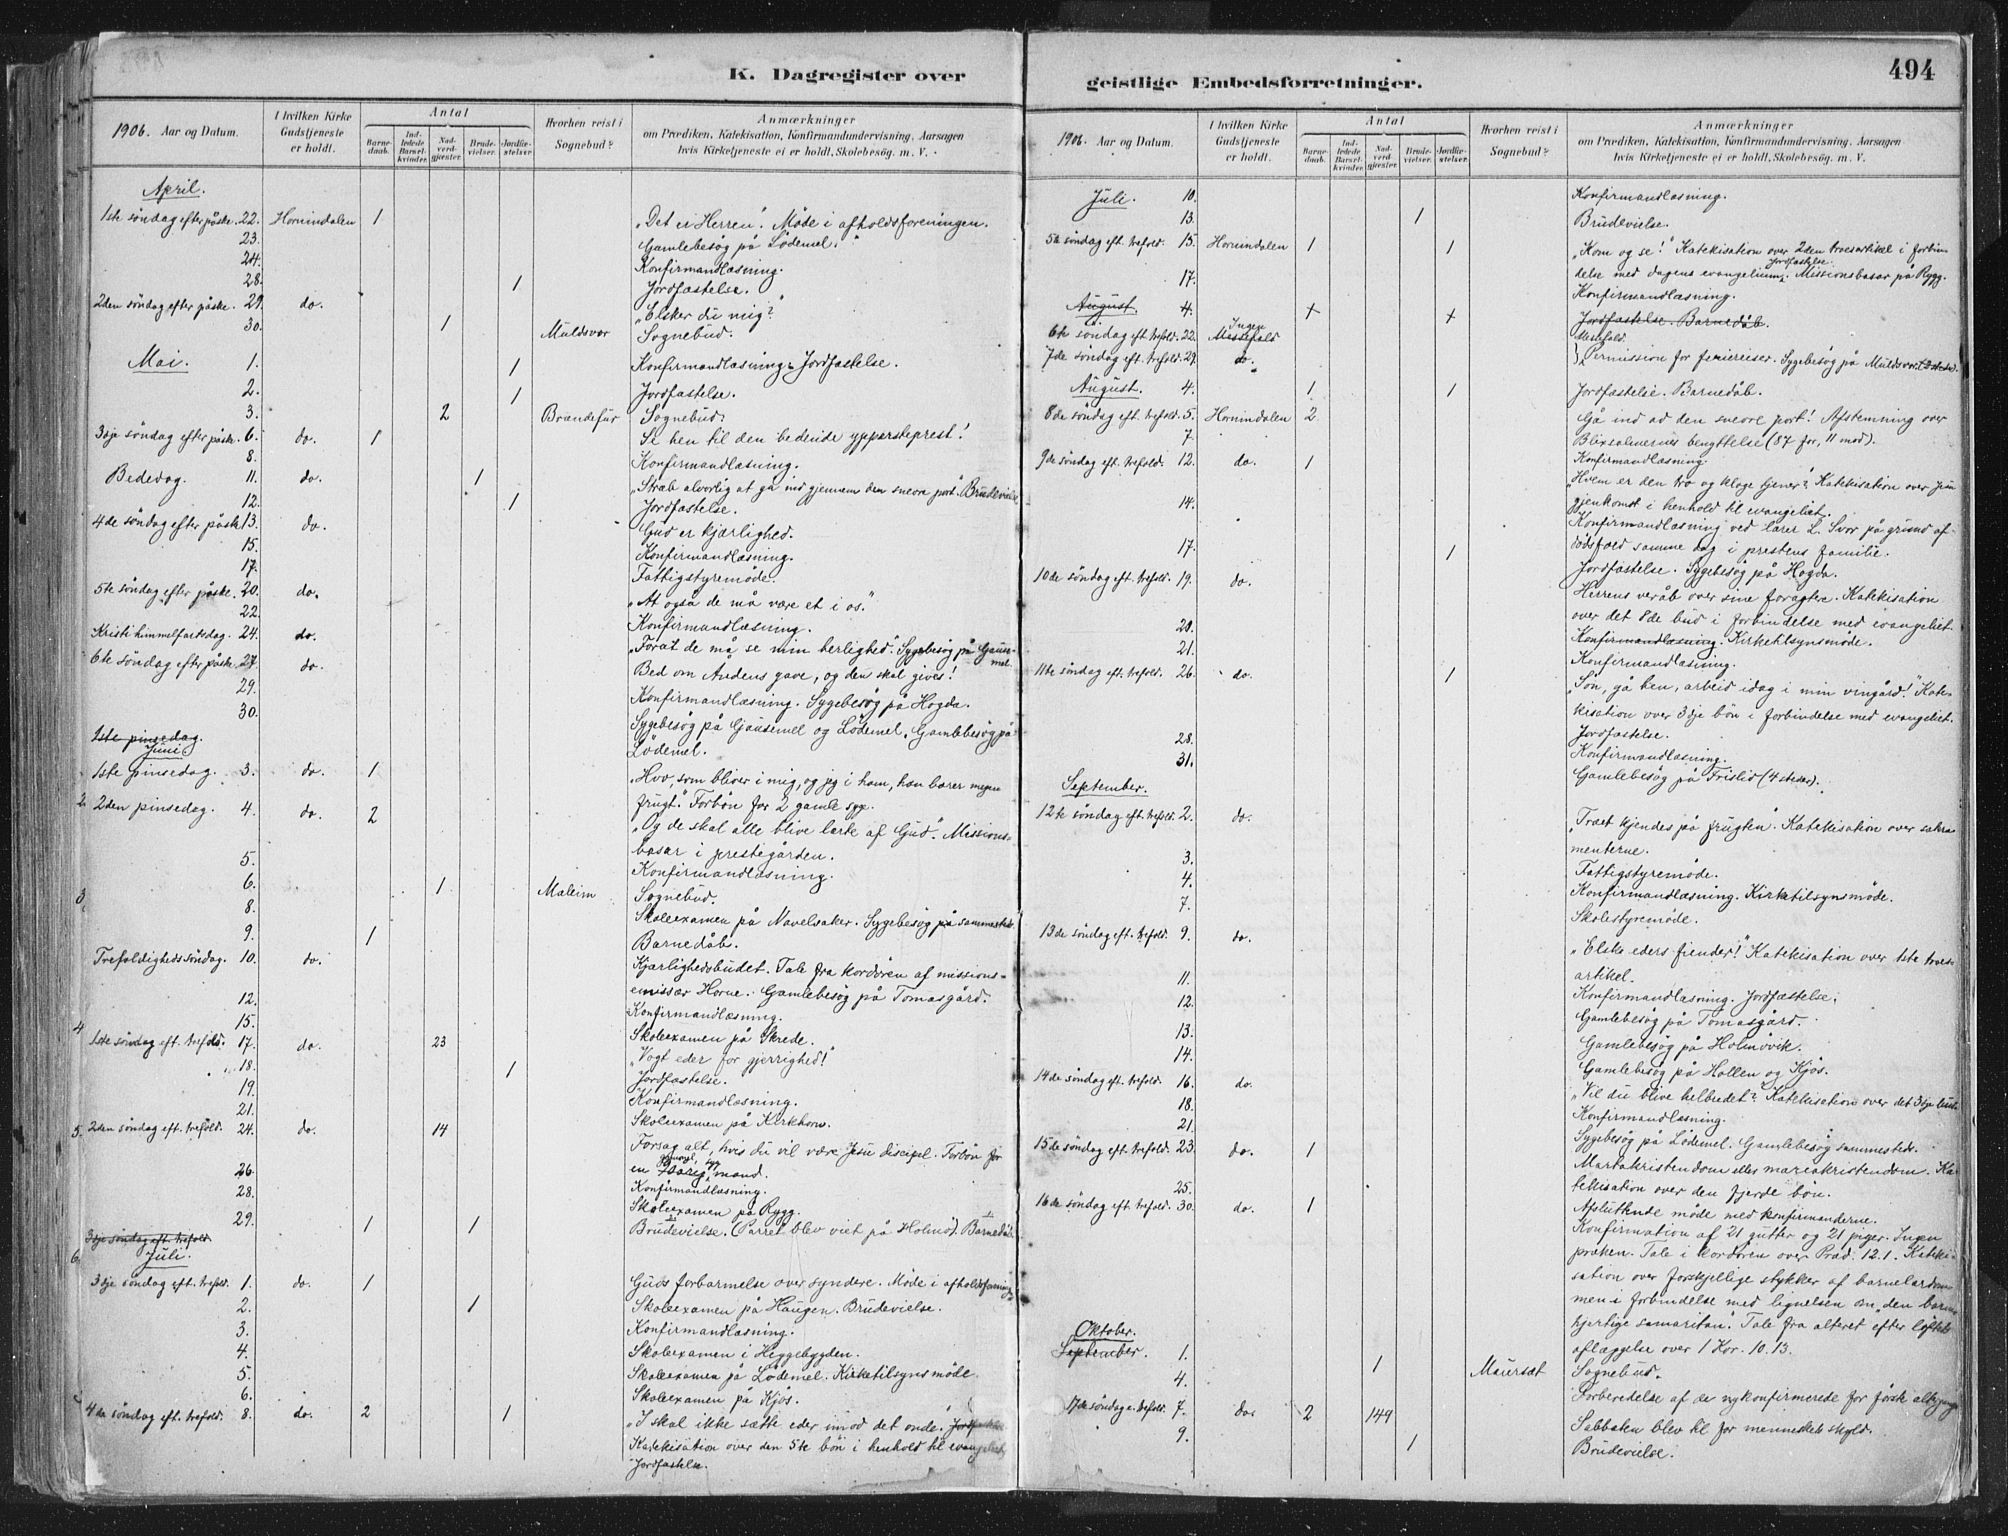 K. Dagregister over
1906. Aar og Datum.
I hvilken Kirke Gudstjeneste er holdt.
Antal
Barnedaab.
Indledede Barselkvinder.
Nadverdgjester.
Brudevielser.
Jordfæstelser.
Hvorhen reist i Sognebud?
Anmærkninger
om Prædiken, Katekisation, Konfirmandundervisning, Aarsagen
hvis Kirketjeneste ei er holdt, Skolebesøg. m. V.
April.
1ste søndag efter påske. 22. Hornindalen 1 "Det er Herren! Møde i afholdsforeningen.
23. Gamlebesøg på Lødemel."
24. Konfirmandlæsning.
28. 1 Jordfæstelse.
2den søndag efter påske. 29. do. "Elsker du mig?"
30. 1 Muldsvor Sognebud.
Mai. 1. 1 Konfirmandlæsning. Jordfæstelse.
2. 1 Jordfæstelse.
3. 2 Brandefur Sognebud.
3dje søndag efter påske. 6. do. 1 Se hen til den bedende ypperstepræst!
8. Konfirmandlæsning.
Bededag. 11. do. 1 "Stræb alvorlig at gå ind gjennem den snevre port". Brudevielse
12. 1 Jordfæstelse.
4de søndag efter påske 13. do. Gud er kjærlighed.
15. Konfirmandlæsning.
17. Fattigstyremøde.
5te søndag efter påske. 20. do. "At også de må være et i os."
22. Konfirmandlæsning.
Kristi himmelfartsdag. 24. do. "Forat de må se min herlighed". Sygebesøg på Gausemel.
6te søndag efter påske. 27. do. Bed om Andens gave, og den skal gives!
29. Konfirmandlæsning. Sygebesøg på Hogda.
30. Sygebesøg på Gausemel og Lødemel. Gamlebesøg på
Lødemel.
1ste pinsedag.
Juni
1ste pinsedag. 3. do. 1 "Hvo, som bliver i mig, og jeg i ham, han bærer megen
frugt." Forbøn for 2 gamle syge.
2den pinsedag. 4. do. 2 "Og de skal alle blive lærte af Gud". Missions-
basar i prestegården.
5. Konfirmandlæsning.
6. 1 Maleim Sognebud.
8. Skoleexamen på Navelsaker. Sygebesøg på sammested.
9. 1 Barnedåb.
Trefoldighedssøndag. 10. do. Kjærlighedsbudet. Tale fra kordøren af missions-
emissær Horne. Gamlebesøg på Tomasgård.
12. Konfirmandlæsning.
15. Skoleexamen på Skrede.
1ste søndag eft. trefold. 17. do. 23 "Vogt eder for gjerrighed!"
18. 1 Jordfæstelse.
19. Konfirmandlæsning.
21. Skoleexamen på Kirkhorn.
2den søndag eft. trefold. 24. do. 14 Forsag alt, hvis du vil være Jesu discipel. Forbøn for
en syg mand.
26. Konfirmandlæsning.
28. Skoleexamen på Rygg.
29. 1 1 Brudevielse. (Parret blev viet på Holmø). Barnedåb.
3dje søndag eft. trefold.
Juli.
3dje søndag eft. trefold. 1. do. 1 Guds forbarmelse over syndere. Møde i afholdsforening
2. 1 Skoleexamen på Haugen. Brudevielse.
3. Konfirmandlæsning.
4. Skoleexamen i Heggebygden.
5. Skoleexamen på Lødemel. Kirketilsynsmøde.
6. Skoleexamen på Kjøs.
4de søndag eft. trefold. 8. do. 2 1 "I skal ikke sætte eder imod det onde.
Katekisation over den 5te bøn i henhold til evangeliet
Jordfæstelse.
geistlige Embedsforretninger.
494
1906. Aar og Datum.
I hvilken Kirke Gudstjeneste er holdt.
Antal
Barnedaab.
Indledede Barselkvinder.
Nadverdgjester.
Brudevielser.
Jordfæstelser.
Hvorhen reist i Sognebud?
Anmærkninger
om Prædiken, Katekisation, Konfirmandundervisning, Aarsagen
hvis Kirketjeneste ei er holdt, Skolebesøg. m. V.
Juli. 10. Konfirmandlæsning.
13. 1 Brudevielse.
5te søndag eft. trefold. 15. Hornindalen 1 1 "Kom og se!" Katekisation over 2den troesartikel i forbin-
delse med dagens evangelium. Jordfæstelse. Missionsbasar på Rygg.
17. Konfirmandlæsning.
August. 4. Jordfæstelse. Barnedåb.
6te søndag eft. trefold. 22. Ingen Messefald Messefald.
7de søndag eft. trefold. 29. do. Permission for ferierreiser. Sygebesøg på Muldsvor (2 steder).
August. 4. 1 1 Jordfæstelse. Barnedåb.
8de søndag eft. trefold. 5. Hornindalen 2 Gå ind ad den snevre port! Afstemning over
Blixsalmernes benyttelse (87 for, 11 mod).
7. Konfirmandlæsning.
9de søndag eft. trefold. 12. do. 1 "Hvem er den tro og kloge tjener?" Katekisation over Jesu
gjenkomst i henhold til evangeliet.
14. Konfirmandlæsning ved lærer L. Svor på grund af
dødsfald samme dag i prestens familie.
17. 1 Jordfæstelse. Sygebesøg på Hogda.
10de søndag eft. trefold. 19. do. Herrens veråb over sine foragtere. Katekisation
over det 8de bud i forbindelse med evangeliet.
20. Konfirmandlæsning. Kirketilsynsmøde.
21. Konfirmandlæsning.
11te søndag eft. trefold. 26. do. 1 "Søn, gå hen, arbeid idag i min vingård!" Kate-
kisation over 3dje bøn i forbindelse med evangeliet.
Jordfæstelse.
28. Konfirmandlæsning.
31. Gamlebesøg på Frislid (4 steder).
September.
12te søndag eft. trefold. 2. do. "Træet kjendes på frugten. Katekisation over sakra-
menterne.
3. Fattigstyremøde.
4. Konfirmandlæsning. Kirketilsynsmøde.
7. Skolestyremøde.
13de søndag eft. trefold. 9. do. "Elske eders fiender!" Katekisation over 1ste troes-
artikel.
11. Konfirmandlæsning. Jordfæstelse.
12. Gamlebesøg på Tomasgård.
13. Gamlebesøg på Holmøvik.
14. Gamlebesøg på Hollen og Kjøs.
14de søndag eft. trefold. 16. do. "Vil du blive helbredet?" Katekisation over det 3dje bud.
18. Konfirmandlæsning.
21. Sygebesøg på Lødemel. Gamlebesøg sammesteds.
15de søndag eft. trefold. 23. do. 1 Martakristendom eller mariakristendom. Ka-
tekisation over den fjerde bøn.
25. Afsluttende møde med konfirmanderne.
16de søndag eft. trefold. 30. do. 1 Konfirmation af 21 gutter og 21 piger. Ingen
præken. Tale i kordøren over Præd. 12.1. Kateki-
sation over forskjellige stykker af barnelærdom-
men i forbindelse med lignelsen om "den barm-
hjertige samaritan." Tale fra alteret efter løftets
aflæggelse over 1 Kor. 10.13.
Oktober.
September. 1. 1 Maursæt Sognebud.
4. Forberedelse af de nykonfirmerede for første altergang
17de søndag e. trefold. 7. do. 2 144 Sabbaten blev til for menneskets skyld.
9. 1 Brudevielse.